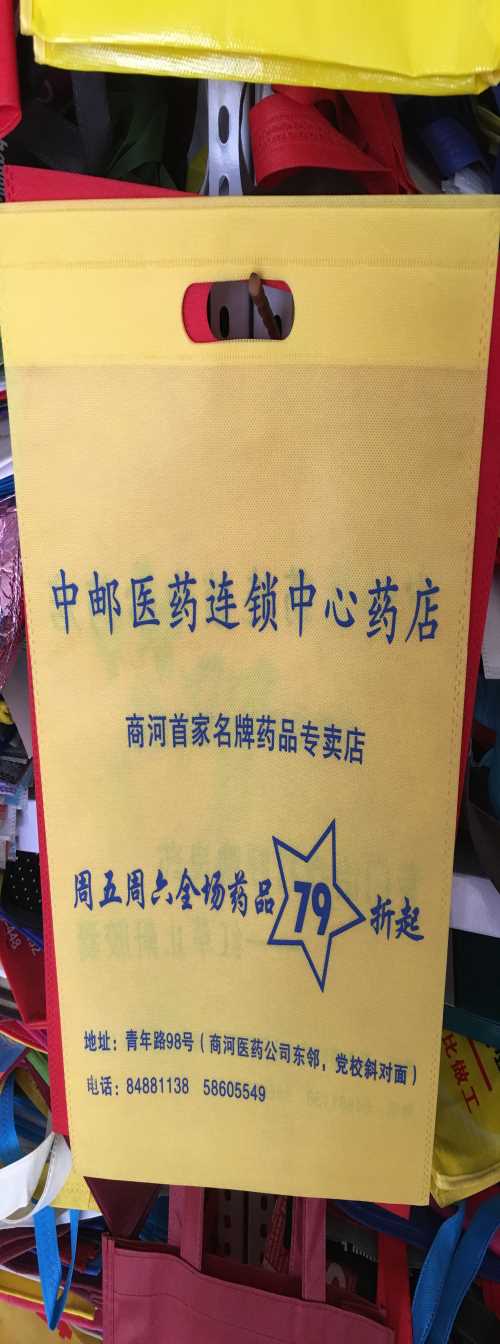 中邮医药连锁中心药店
商河首家名牌药品专卖店
周五周六全场药品79折起
地址：青年路98号（商河医药公司东邻，党校斜对面）
电话：84881138 58605549